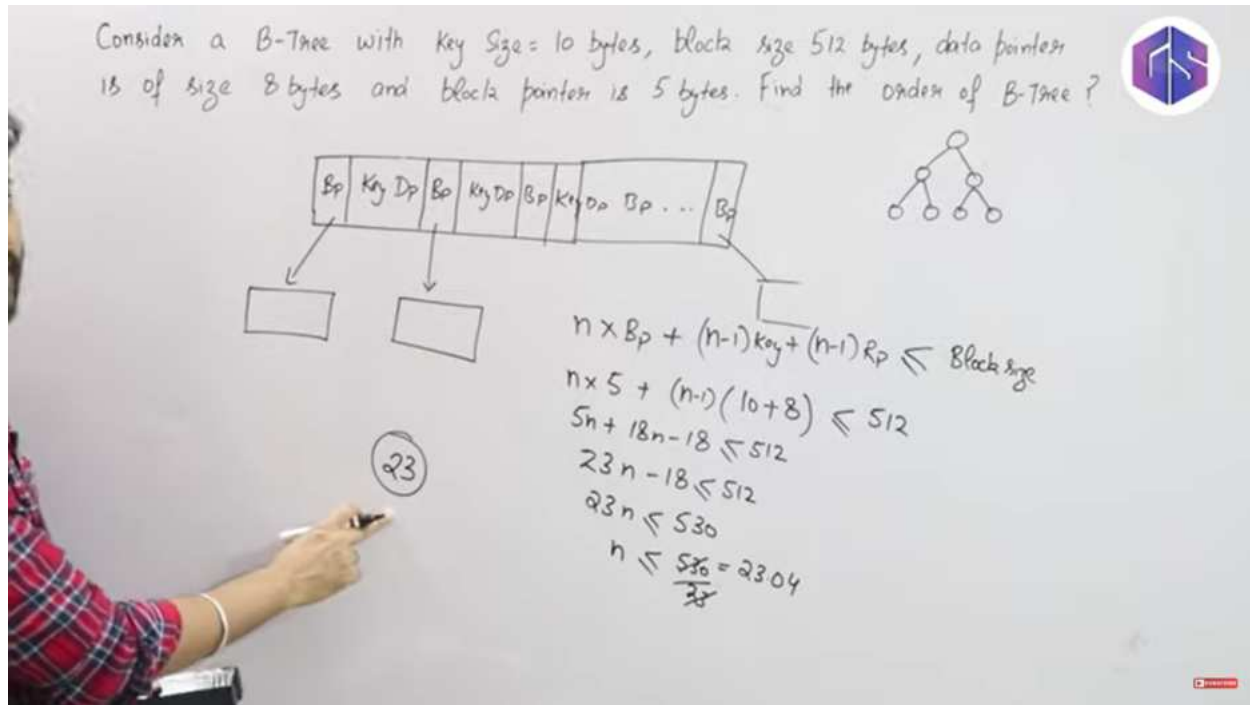 Consider a B-Tree with Key Size = 10 bytes, block size 512 bytes, data pointer
is of size 8 bytes and block pointer is 5 bytes. Find the order of B-Tree?
Bp Key Dp Bp Key Dp Bp Key Dp Bp ... Bp
n × Bp + (n-1) Key + (n-1) Rp ⩽ Block size
n × 5 + (n-1) (10+8) ⩽ 512
5n + 18n - 18 ⩽ 512
23n - 18 ⩽ 512
23
23n ⩽ 530
n ⩽ 530/23 = 23.04
SUBSCRIBE